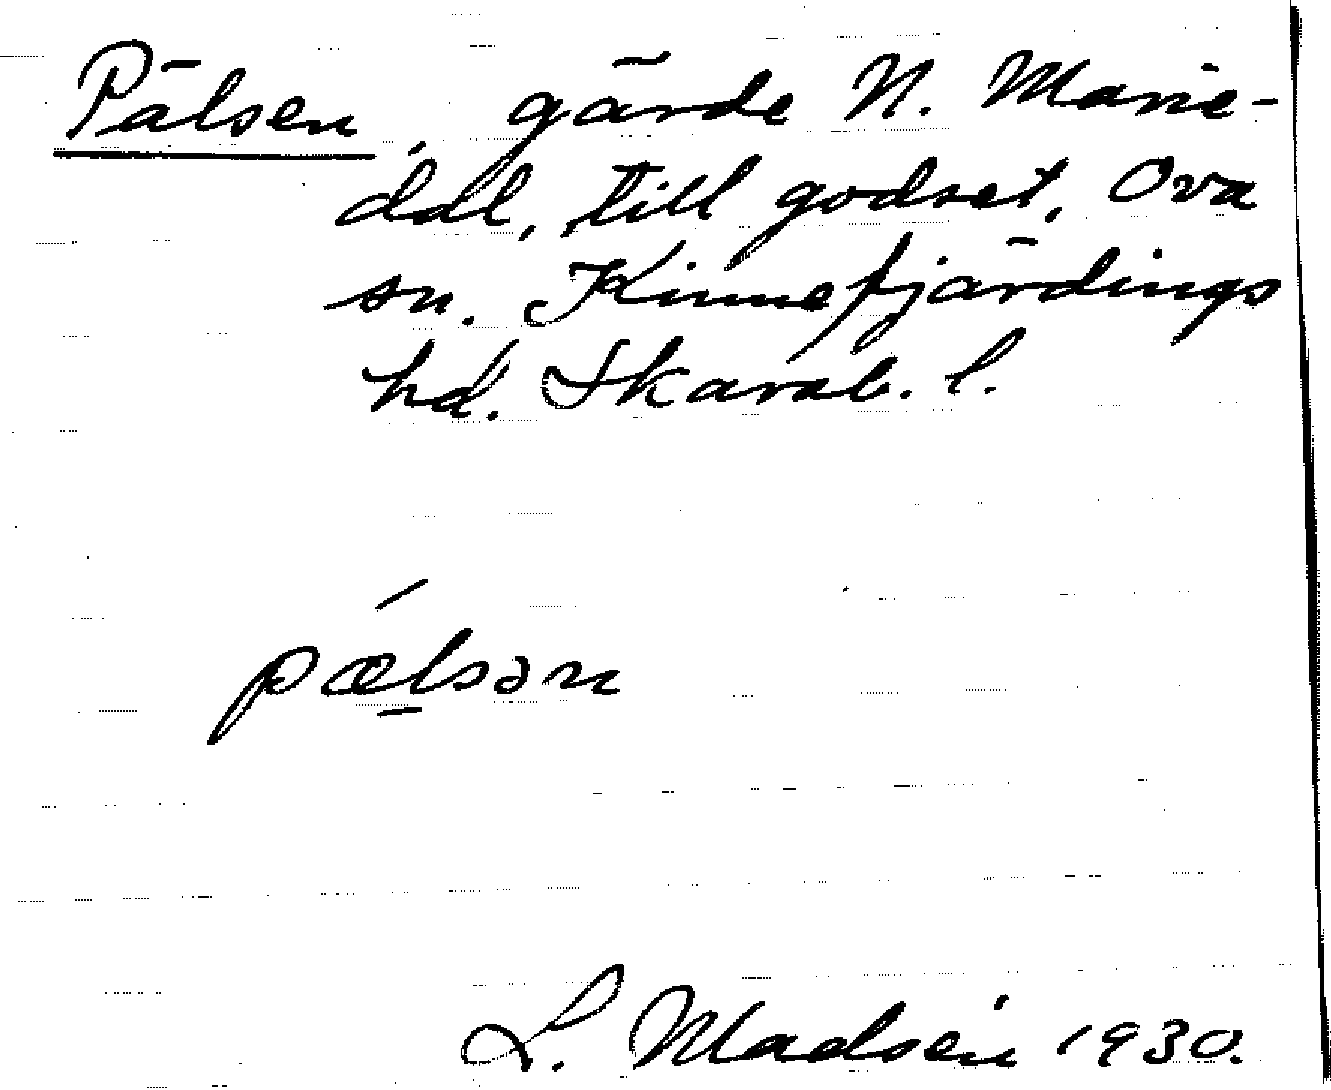 Pälsen, gärde N. Marie-
dal, till godset, Ova
sn. Kinnefjärdings
hd. Skarab. l.
pælsən
L. Madsén 1930.